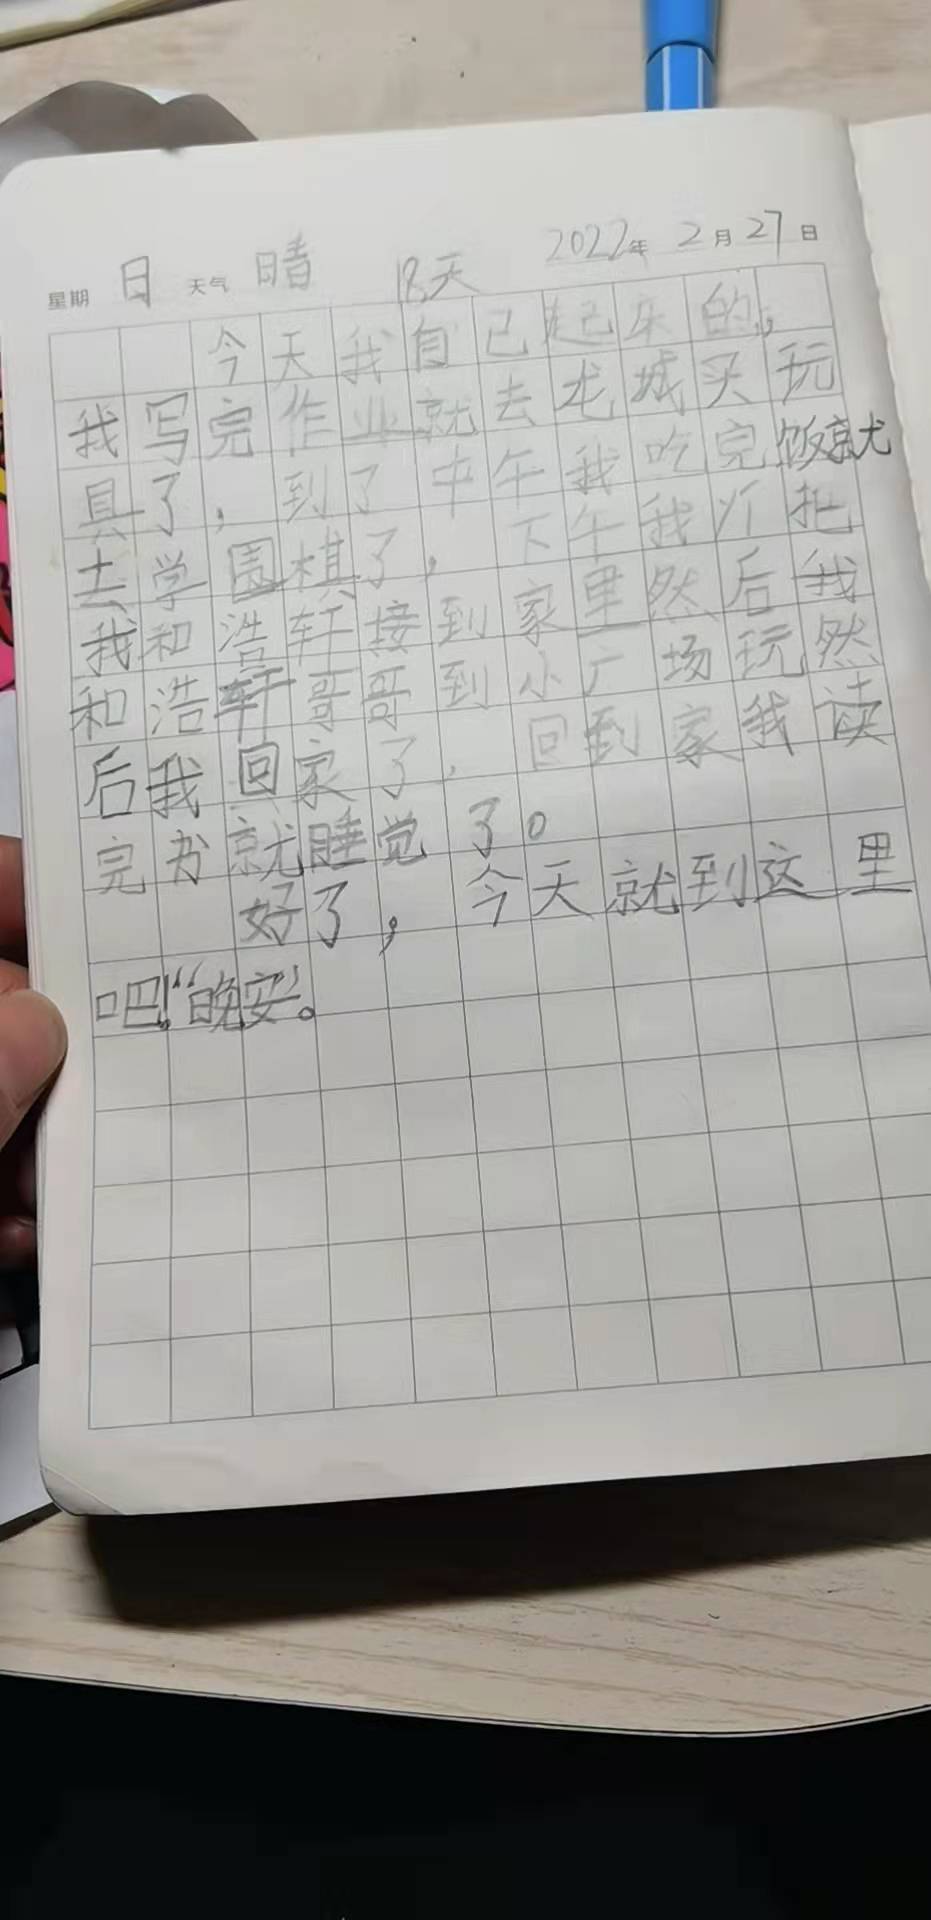 星期 日 天气 晴 18天 2022年 2月 27日
今天我自己起床的,
我写完作业就去龙城买玩
具了，到了中午我吃完饭就
去学围棋了，下午我把
我和浩轩接到家里然后我
和浩轩哥哥到小广场玩然
后我回家了，回到家我读
完书就睡觉了。
好了，今天就到这里
吧！“晚安”。